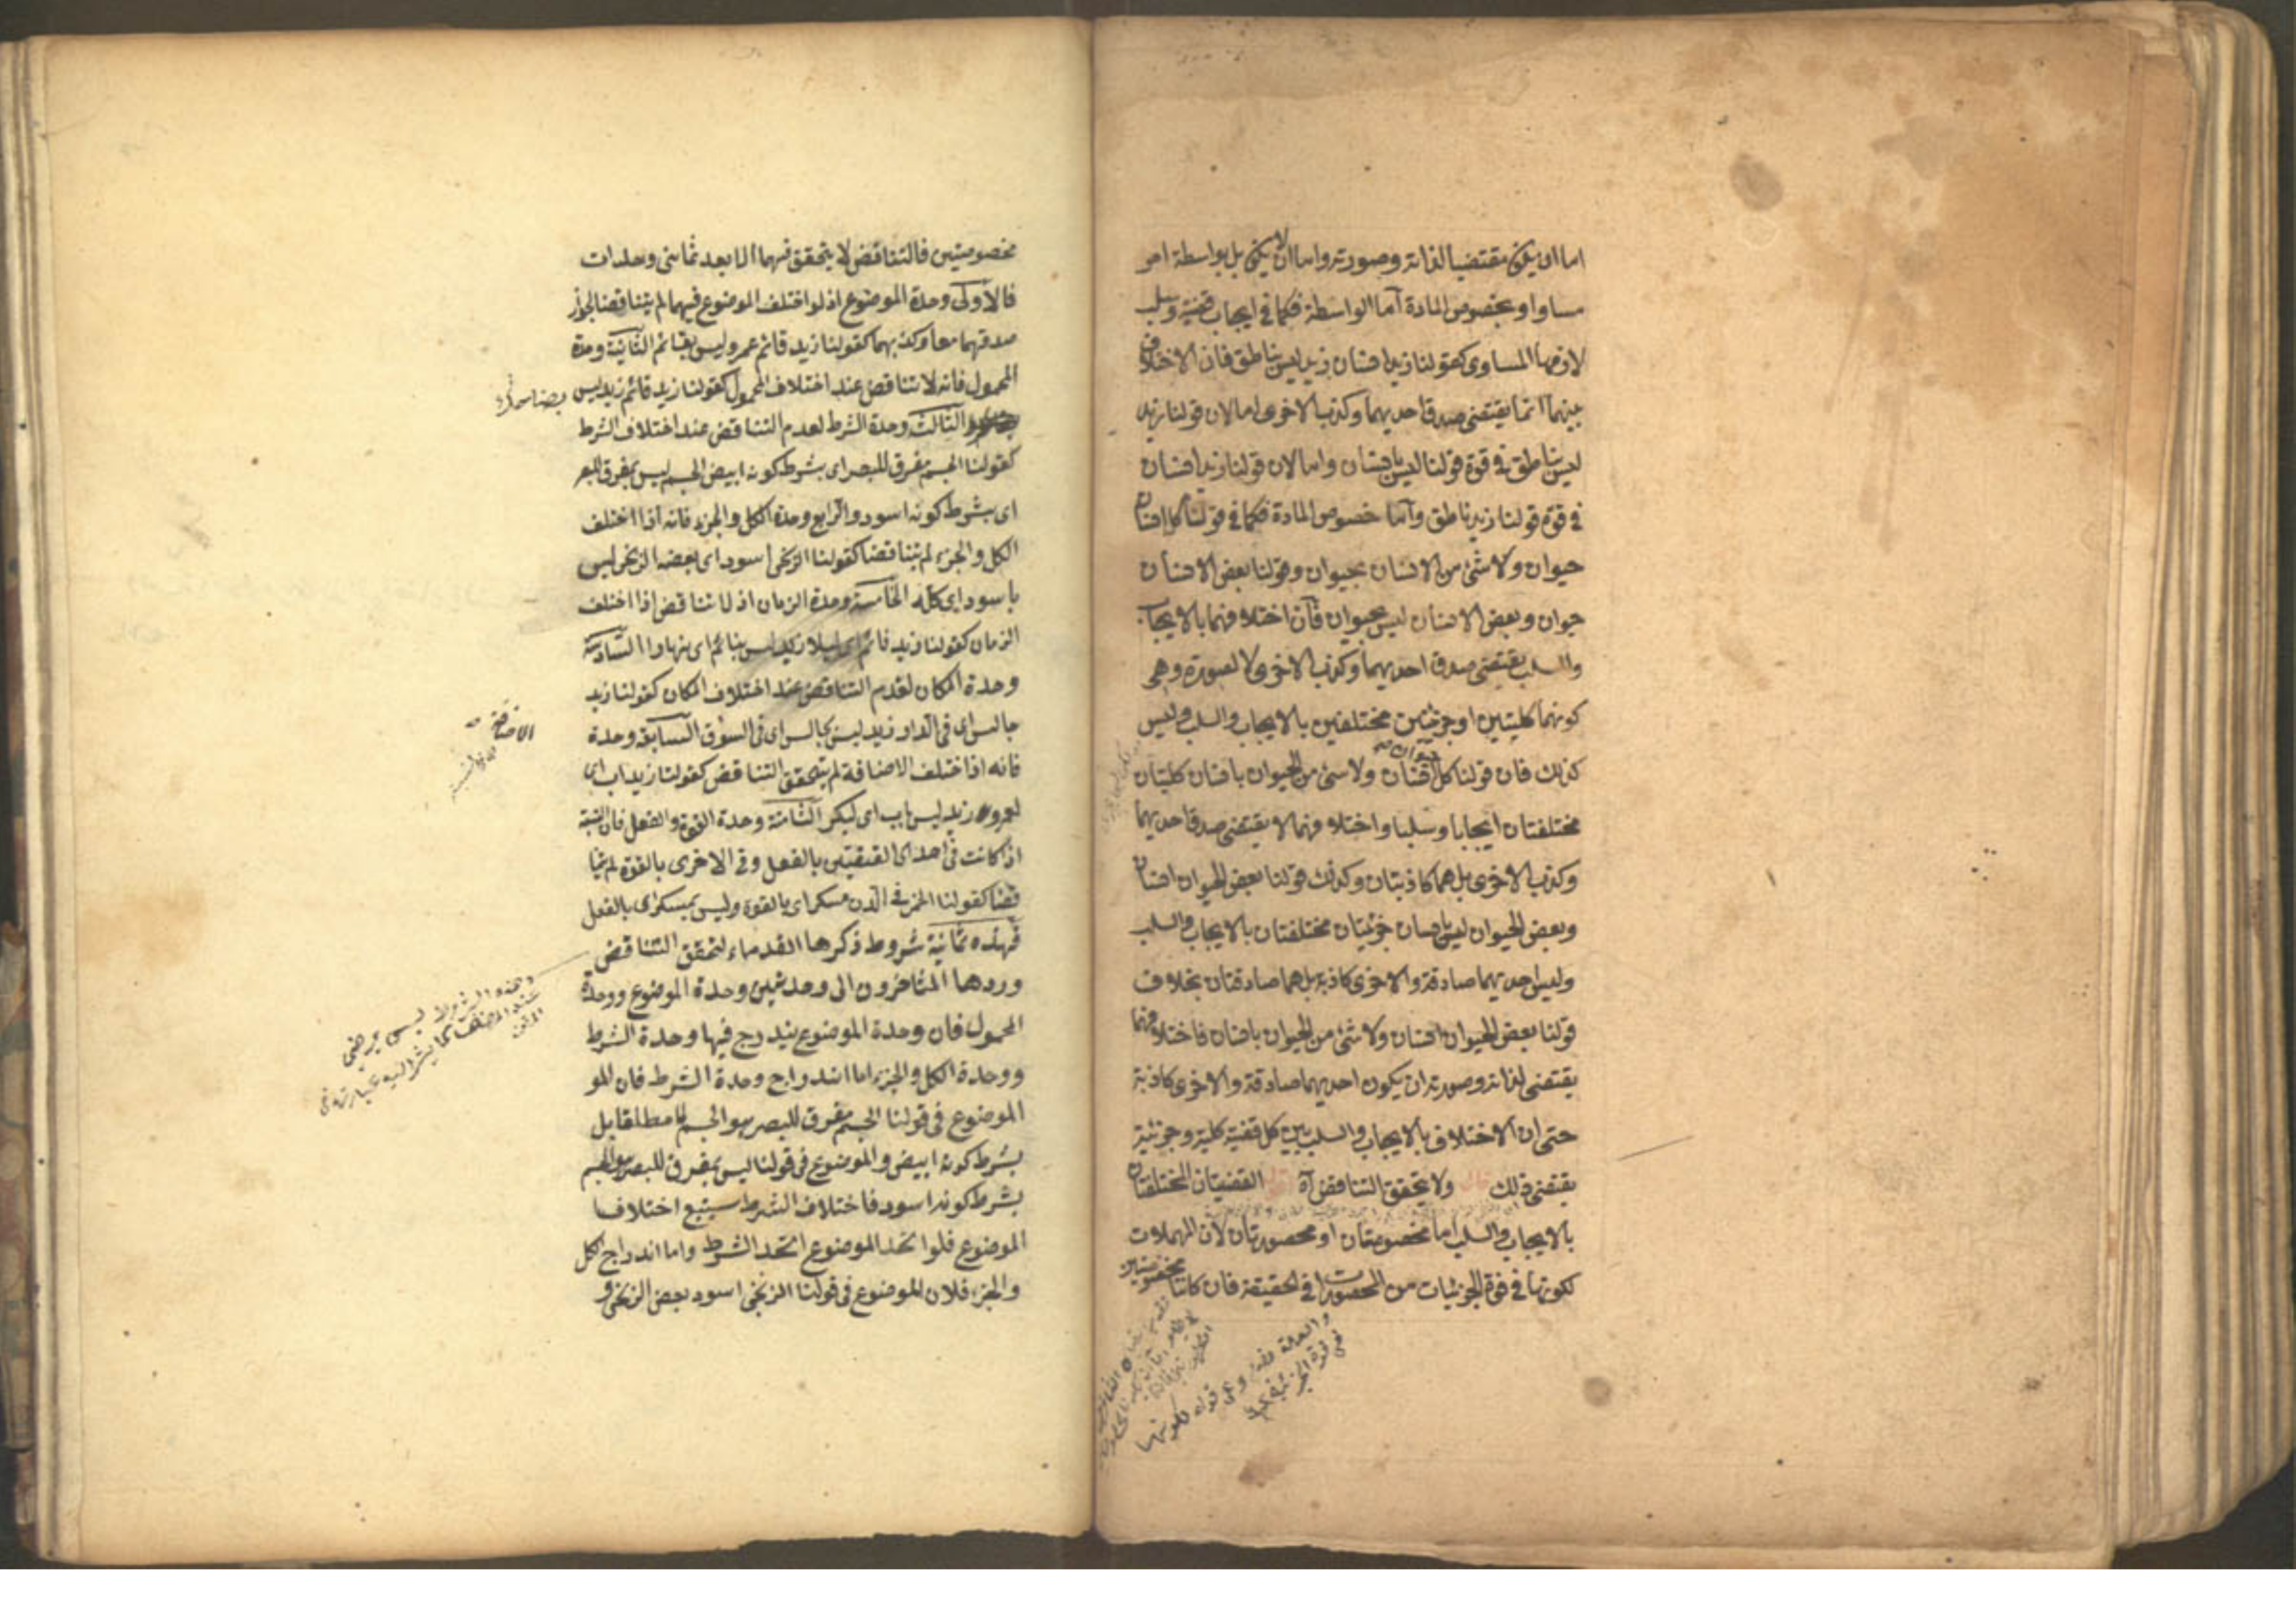 اما ان يكون مقتضيا لذاته وصورته واما ان لا يكون بل بواسطة امر
مساو او بخصوص المادة اما الواسطة فكما في ايجاب قضية وسلب
لازمها المساوى كقولنا زيد انسان زيد ليس بناطق فان الاختلاف
بينهما انما يقتضى صدق احديهما وكذب الاخرى اما لان قولنا زيد
ليس بناطق في قوة قولنا ليس بانسان واما لان قولنا زيد انسان
في قوة قولنا زيد ناطق واما خصوص المادة فكما في قولنا كل انسان
حيوان ولا شئ من الانسان بحيوان وقولنا بعض الانسان
حيوان وبعض الانسان ليس بحيوان فان اختلافهما بالايجاب
والسلب يقتضى صدق احديهما وكذب الاخرى لا لصورته وهى
كونهما كليتين او جزئيتين مختلفتين بالايجاب والسلب وليس
كذلك فان قولنا كل حيوان انسان ولا شئ من الحيوان بانسان كليتان
مختلفتان ايجابا وسلبا واختلافهما لا يقتضى صدق احديهما
وكذب الاخرى بل هما كاذبتان وكذلك قولنا بعض الحيوان انسان
وبعض الحيوان ليس بانسان جزئيتان مختلفتان بالايجاب والسلب
وليس احديهما صادقة والاخرى كاذبة بل هما صادقتان بخلاف
قولنا بعض الحيوان انسان ولا شئ من الحيوان بانسان فاختلافهما
يقتضى لذاته وصورته ان يكون احديهما صادقة والاخرى كاذبة
حتى ان الاختلاف بالايجاب والسلب بين كل قضية كلية وجزئية
يقتضى ذلك قال ولا يتحقق التناقض آه اقول القضيتان المختلفتان
بالايجاب والسلب اما مخصوصتان او محصورتان لان المهملات
لكونها في قوة الجزئيات من المحصورات في الحقيقة فان كانتا مخصوصتين
مخصوصتين فالتناقض لا يتحقق فيهما الا بعد ثمانى وحدات
فالاولى وحدة الموضوع اذ لو اختلف الموضوع فيهما لم يتناقضا لجواز
صدقهما معا وكذبهما كقولنا زيد قائم عمرو ليس بقائم الثانية وحدة
المحمول فانه لا تناقض عند اختلاف المحمول كقولنا زيد قائم زيد ليس
الثالث وحدة الشرط لعدم التناقض عند اختلاف الشرط
كقولنا الجسم مفرق للبصر اى بشرط كونه ابيض الجسم ليس بمفرق للبصر
اى بشرط كونه اسود والرابع وحدة الكل والجزء فانه اذا اختلف
الكل والجزء لم يتناقضا كقولنا الزنجى اسود اى بعضه الزنجى ليس
باسود اى كله الخامسة وحدة الزمان اذ لا تناقض اذا اختلف
الزمان كقولنا زيد نائم اى ليلا زيد ليس بنائم اى نهارا السادسة
وحدة المكان لعدم التناقض عند اختلاف المكان كقولنا زيد
جالس اى فى الدار زيد ليس بجالس اى فى السوق السابعة وحدة
الاضافة
فانه اذا اختلف الاضافة لم يتحقق التناقض كقولنا زيد اب اى
لعمرو زيد ليس باب اى لبكر الثامنة وحدة القوة والفعل فان النسبة
اذا كانت فى احدى القضيتين بالفعل وفى الاخرى بالقوة لم يتنا
قضا كقولنا الخمر فى الدن مسكر اى بالقوة وليس بمسكر اى بالفعل
فهذه ثمانية شروط ذكرها القدماء لتحقق التناقض
وردها المتأخرون الى وحدتين وحدة الموضوع ووحدة
المحمول فان وحدة الموضوع يندرج فيها وحدة الشرط
ووحدة الكل والجزء اما اندراج وحدة الشرط فان المو
الموضوع فى قولنا الجسم مفرق للبصر هو الجسم لا مطلقا بل
بشرط كونه ابيض والموضوع فى قولنا ليس بمفرق للبصر هو الجسم
بشرط كونه اسود فاختلاف الشرط يستتبع اختلاف
الموضوع فلو اتحد الموضوع اتحد الشرط واما اندراج الكل
والجزء فلان الموضوع فى قولنا الزنجى اسود بعض الزنجى و